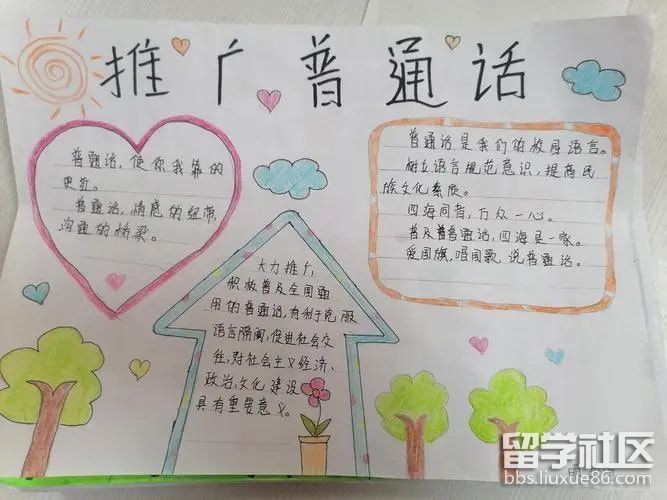 推广普通话
普通话，使你我靠的
更近。
普通话，情感的纽带，
沟通的桥梁。
普通话是我们的校园语言。
树立语言规范意识，提高民
族文化素质。
四海同音，万众一心。
普及普普通话，四海是一家。
爱国旗，唱国歌，说普通话。
大力推广，
积极普及全国通
用的普通话，有利于克服
语言隔阂，促进社会交
往，对社会主义经济、
政治，文化建设
具有重要意义。
留学社区
bbs.liuxue86.com